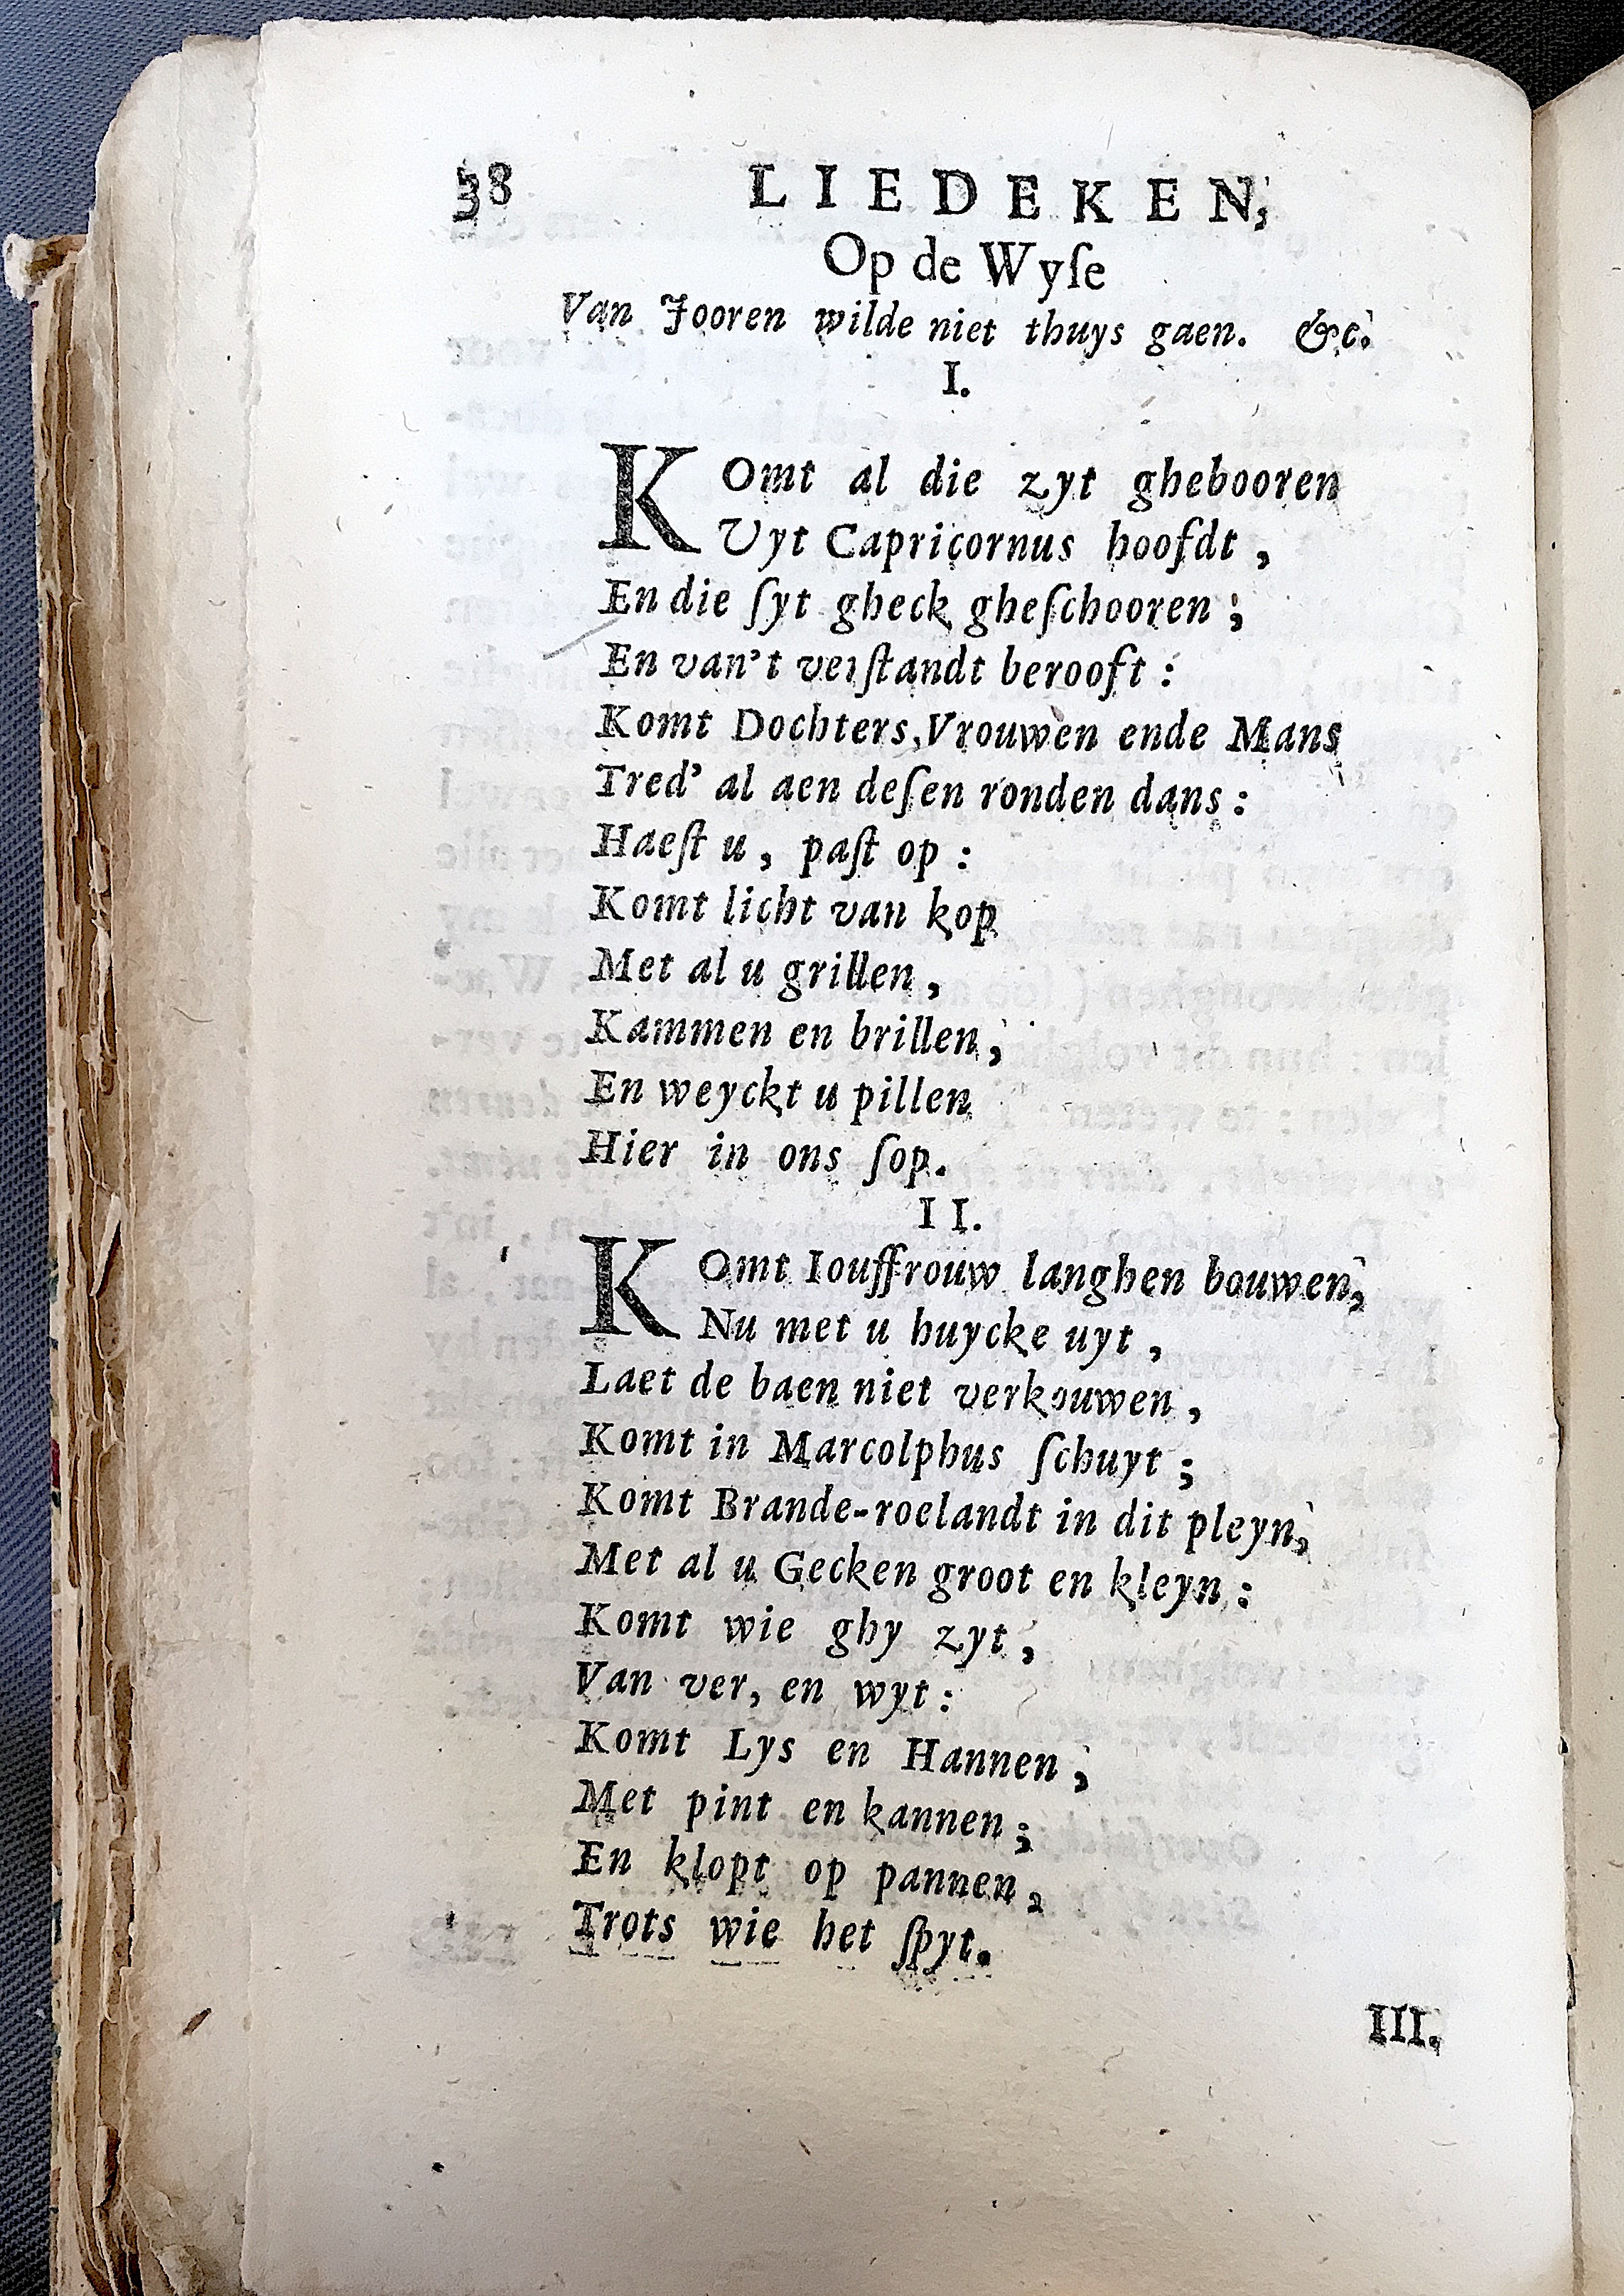 38 LIEDEKEN,
Op de Wyſe
Van Jooren wilde niet thuys gaen. &c.
I.
KOmt al die zyt ghebooren
Uyt Capricornus hoofdt,
En die ſyt gheck gheſchooren;
En van't verſtandt berooft:
Komt Dochters,Vrouwen ende Mans
Tred' al aen deſen ronden dans:
Haeſt u, paſt op:
Komt licht van kop
Met al u grillen,
Kammen en brillen,
En weyckt u pillen
Hier in ons ſop.
II.
KOmt Iouffrouw langhen bouwen,
Nu met u huycke uyt,
Laet de baen niet verkouwen,
Komt in Marcolphus ſchuyt;
Komt Brande-roelandt in dit pleyn,
Met al u Gecken groot en kleyn:
Komt wie ghy zyt,
Van ver, en wyt:
Komt Lys en Hannen,
Met pint en kannen;
En klopt op pannen,
Trots wie het ſpyt.
III.